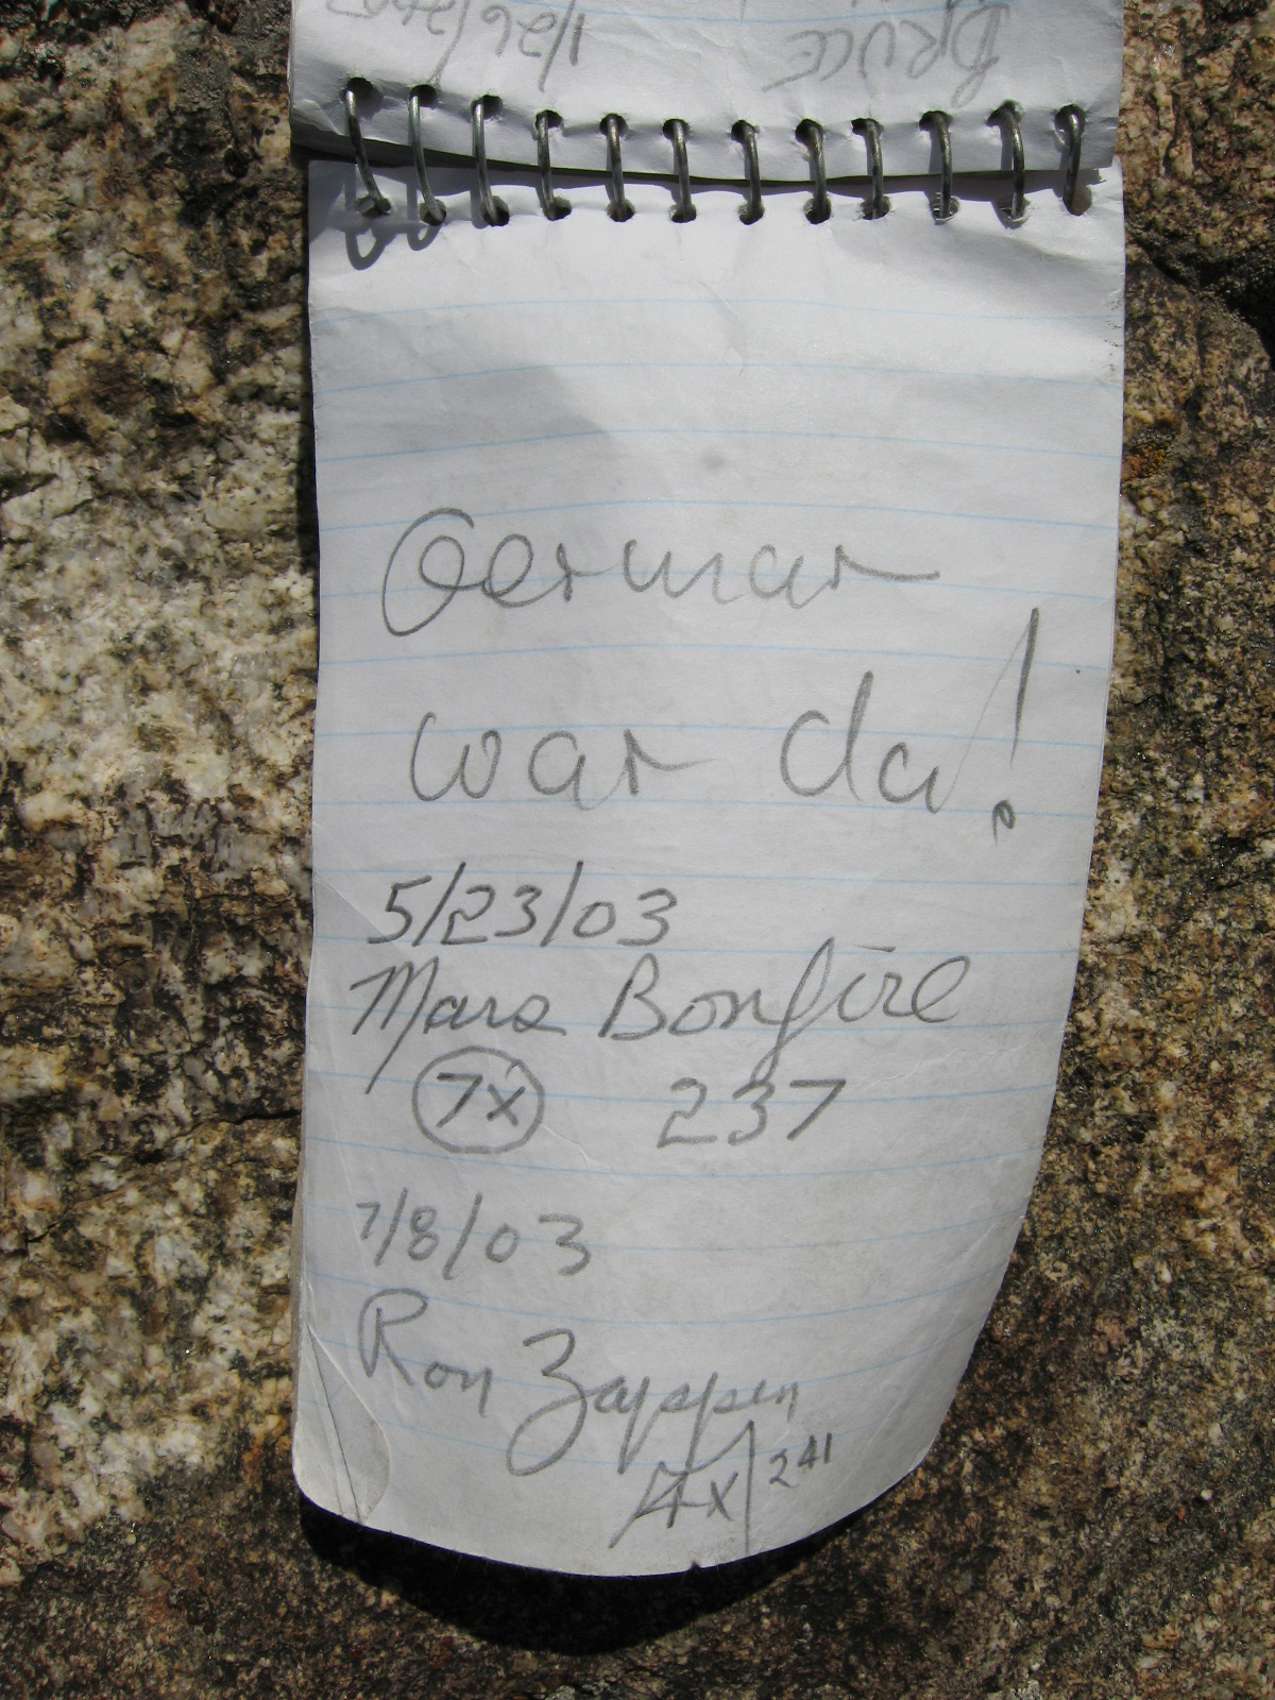 BRUCE 1/26/2003
German
war da!
5/23/03
Mars Bonfire
7x 237
7/8/03
Ron Zappen
4x 241